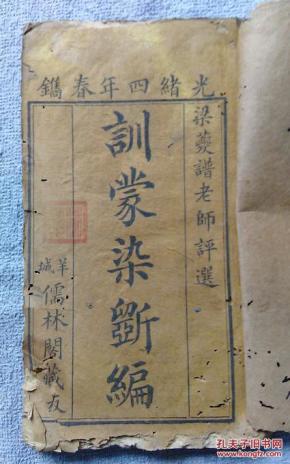 光緒四年春鐫
梁葵譜老師評選
訓蒙染斲編
羊城
儒林閣藏板
孔夫子旧书网